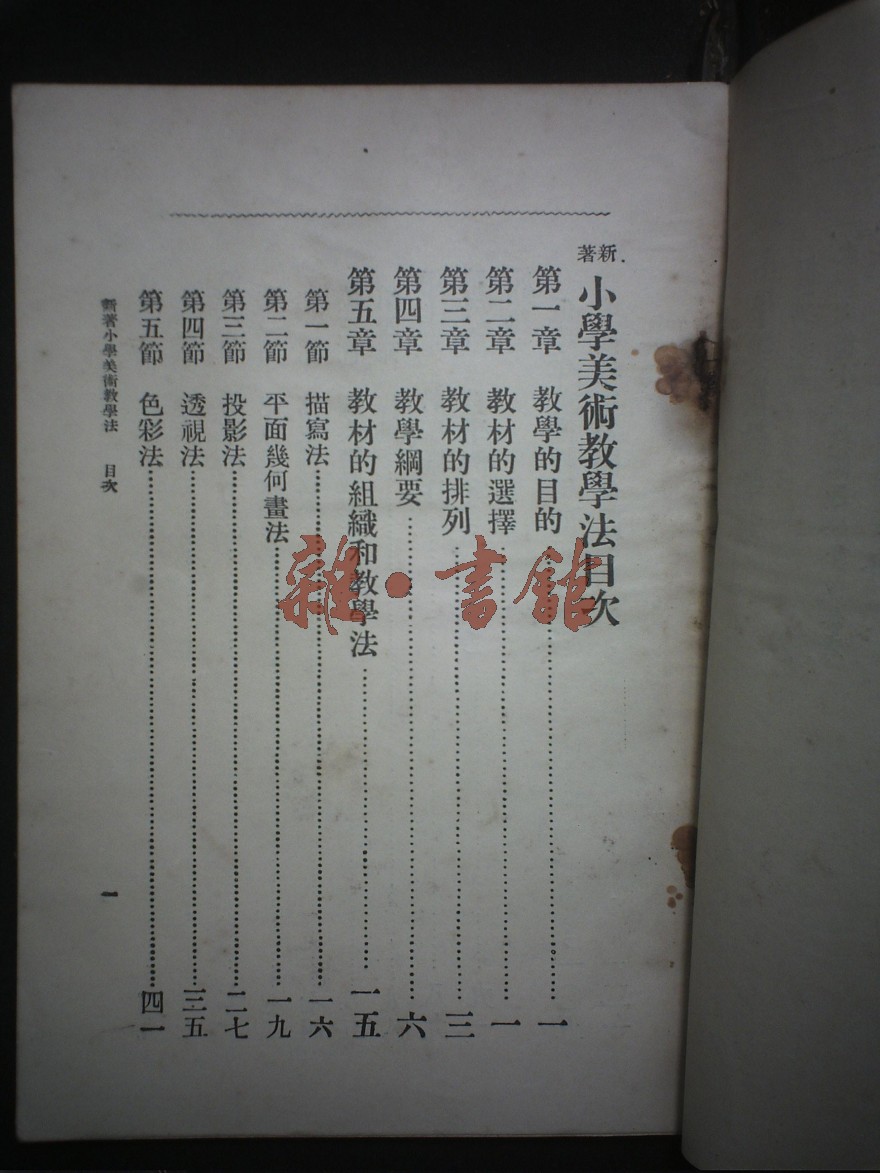 新著 小學美術教學法目次
第一章 教學的目的……一
第二章 教材的選擇……一
第三章 教材的排列……三
第四章 教學綱要……六
第五章 教材的組織和教學法……一五
第一節 描寫法……一六
第二節 平面幾何畫法……一九
第三節 投影法……二七
第四節 透視法……三五
第五節 色彩法……四一
新著小學美術教學法 目次
一
雜·書館